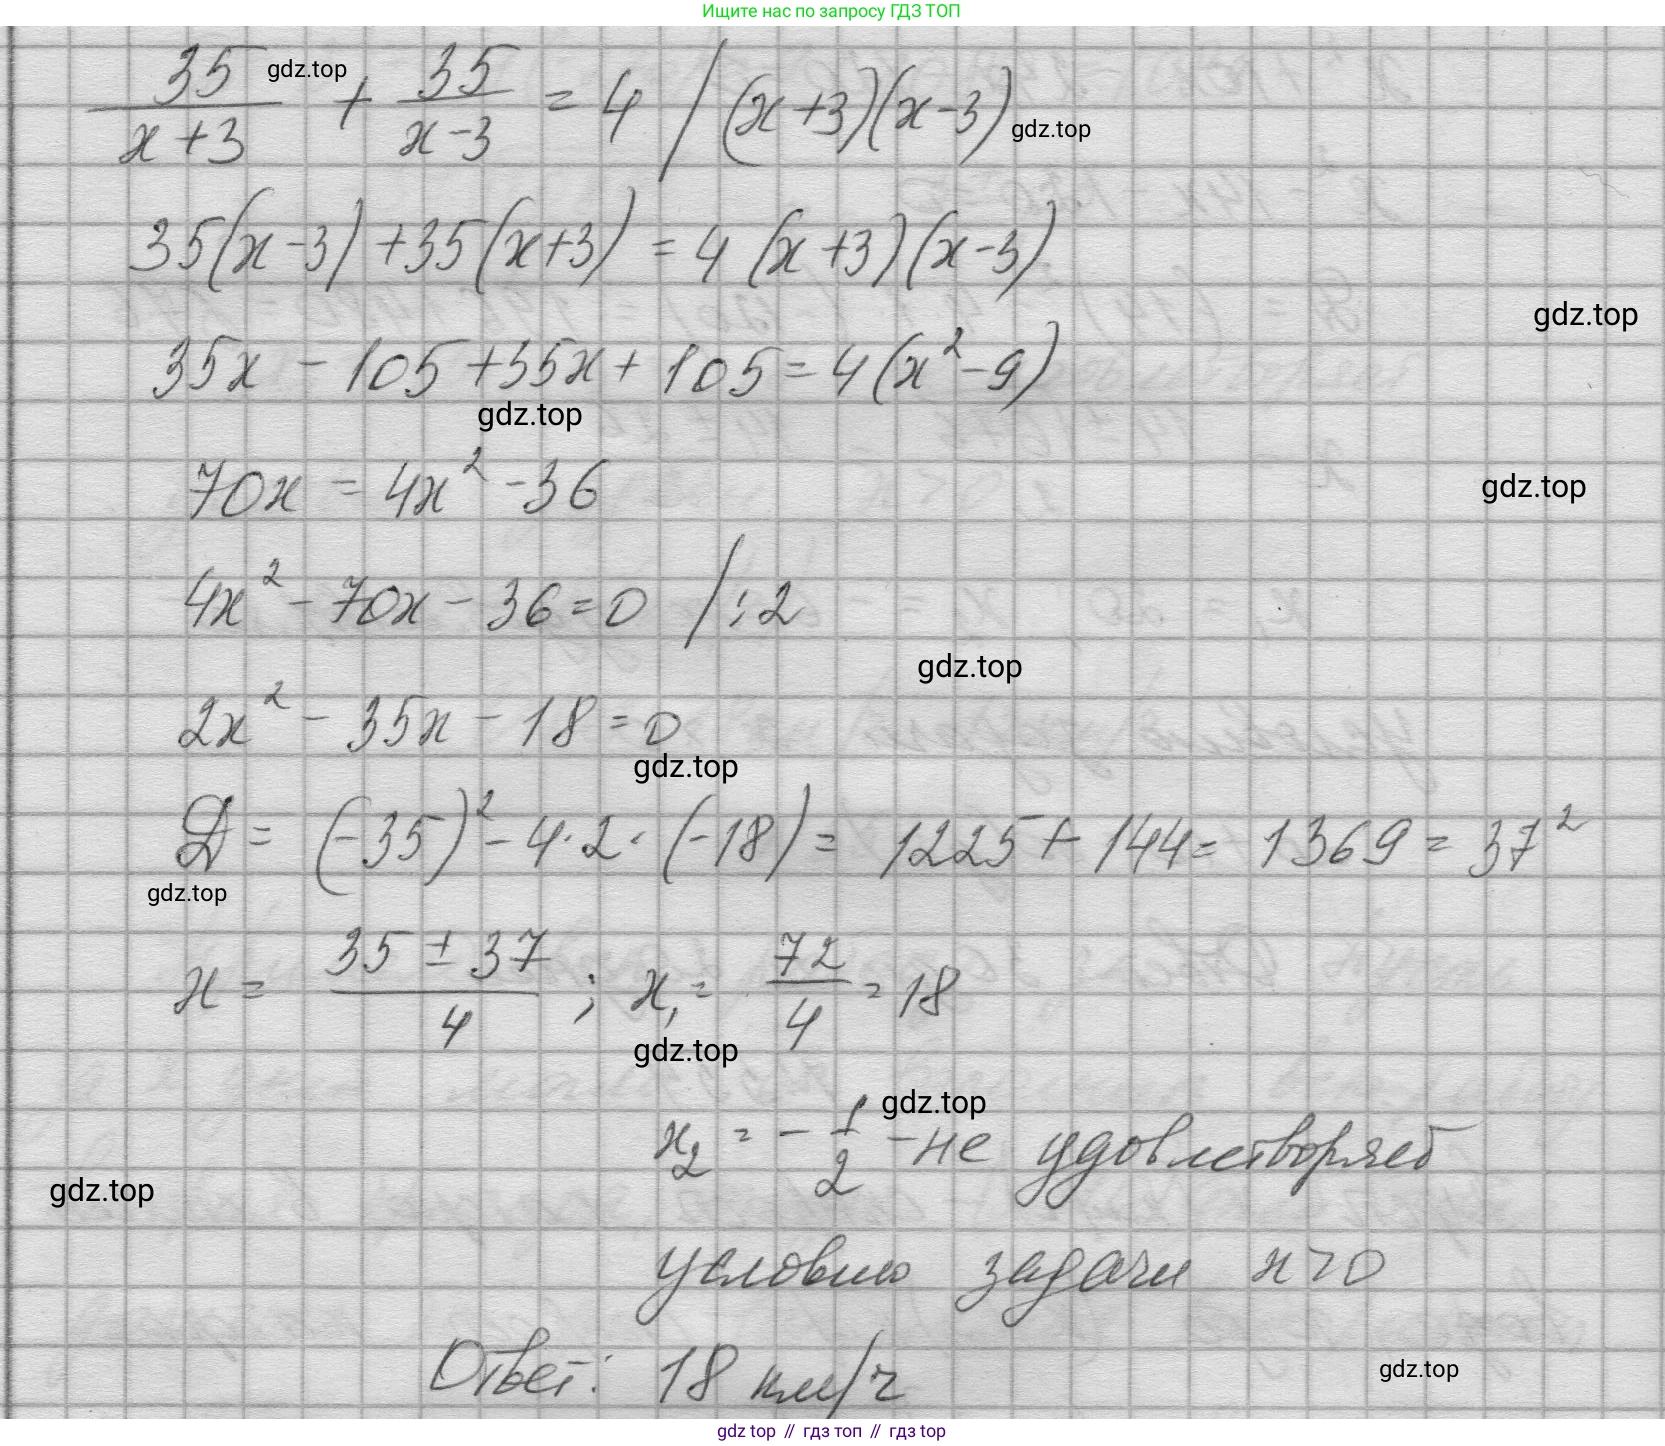 Ищите нас по запросу ГДЗ ТОП
35/(x+3) + 35/(x-3) = 4 / (x+3)(x-3)
gdz.top
gdz.top
35(x-3)+35(x+3) = 4(x+3)(x-3)
gdz.top
35x - 105 + 35x + 105 = 4(x²-9)
gdz.top
70x = 4x² - 36
gdz.top
4x² - 70x - 36 = 0 / :2
gdz.top
2x² - 35x - 18 = 0
gdz.top
D = (-35)² - 4·2·(-18) = 1225 + 144 = 1369 = 37²
gdz.top
x = (35 ± 37)/4 ; x₁ = 72/4 = 18
gdz.top
gdz.top
x₂ = - 1/2 - не удовлетворяет
gdz.top
условию задачи x>0
Ответ: 18 км/ч
gdz.top
gdz top // гдз топ // gdz top